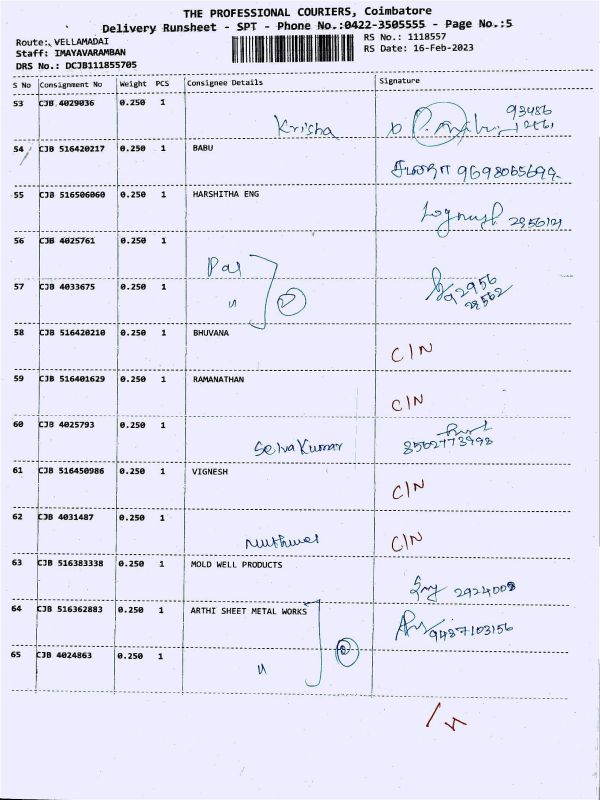 THE PROFESSIONAL COURIERS, Coimbatore
Delivery Runsheet - SPT - Phone No.:0422-3505555 - Page No.:5
Route: VELLAMADAI RS No.: 1118557
Staff: IMAYAVARAMBAN RS Date: 16-Feb-2023
DRS No.: DCJB111855705
S No Consignment No Weight PCS Consignee Details Signature
53 CJB 4029036 0.250 1
Krisha 93456
54 CJB 516420217 0.250 1 BABU
9698065699
55 CJB 516506060 0.250 1 HARSHITHA ENG
56 CJB 4025761 0.250 1
Pal
57 CJB 4033675 0.250 1
" 2 92956
58 CJB 516420210 0.250 1 BHUVANA
C/N
59 CJB 516401629 0.250 1 RAMANATHAN
C/N
60 CJB 4025793 0.250 1
SelvaKumar
61 CJB 516450986 0.250 1 VIGNESH
C/N
62 CJB 4031487 0.250 1
C/N
63 CJB 516383338 0.250 1 MOLD WELL PRODUCTS
2924008
64 CJB 516362883 0.250 1 ARTHI SHEET METAL WORKS
9487103156
65 CJB 4024863 0.250 1
" 2